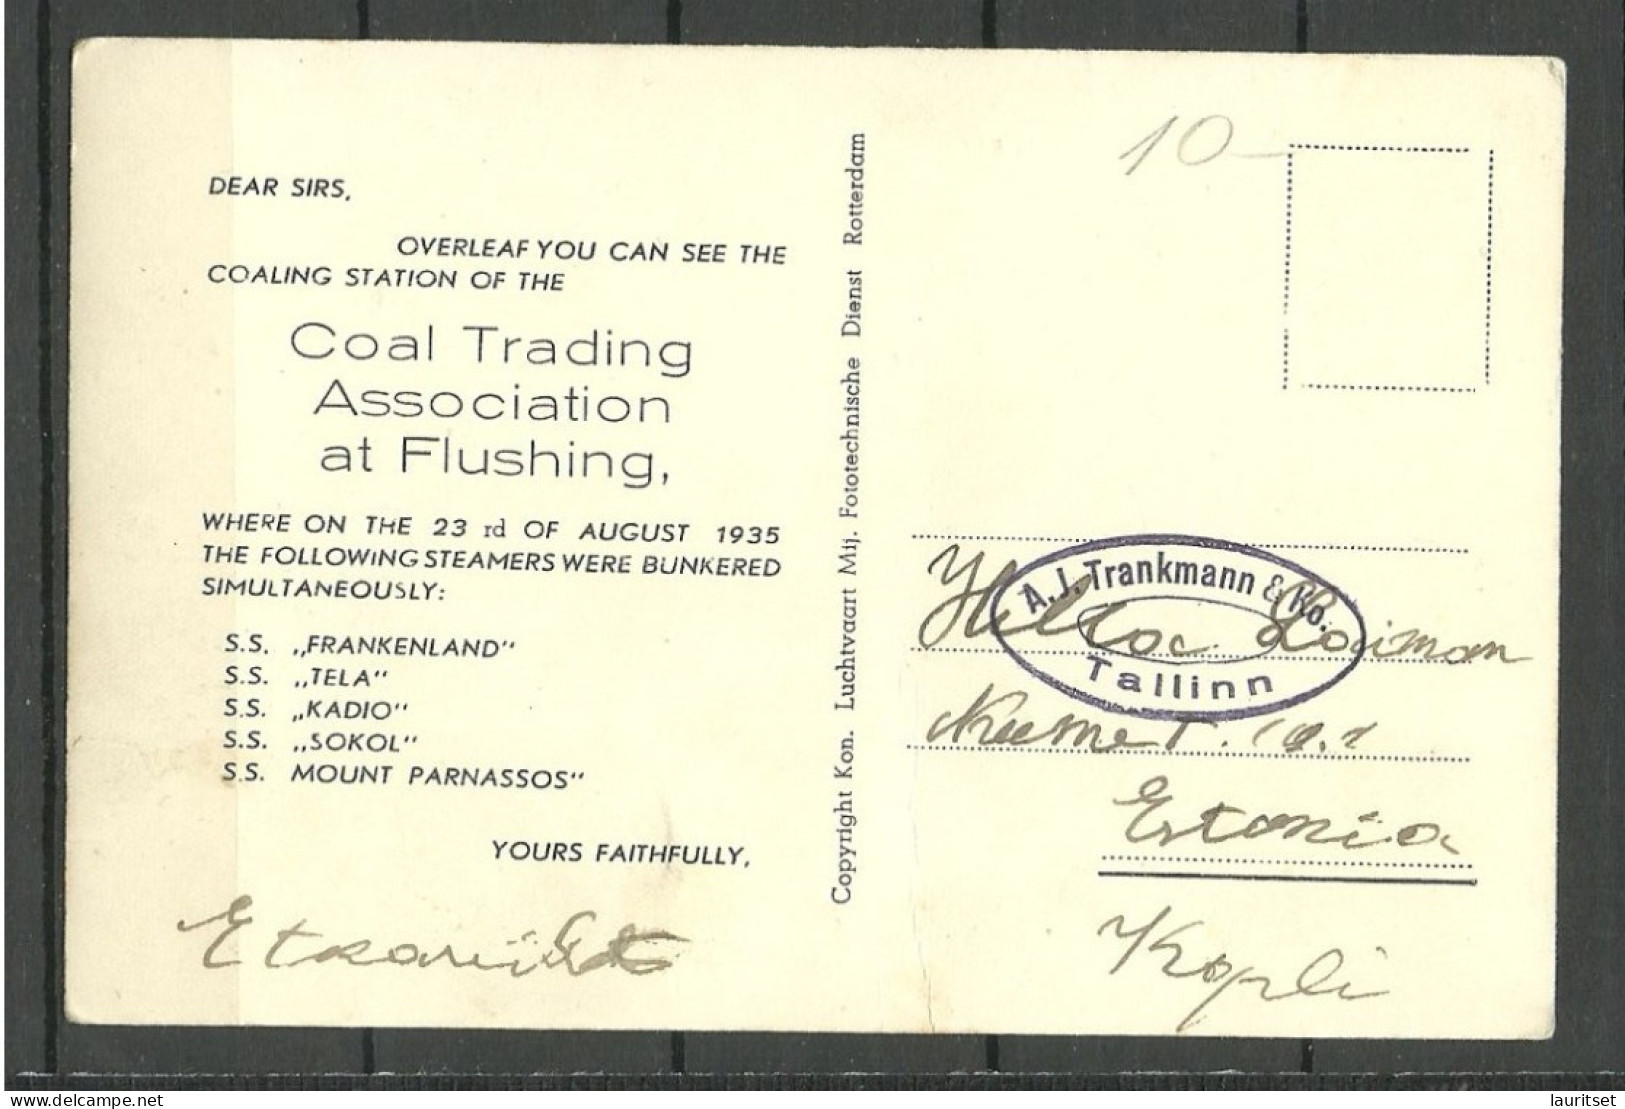 DEAR SIRS,
OVERLEAF YOU CAN SEE THE
COALING STATION OF THE
Coal Trading
Association
at Flushing,
WHERE ON THE 23 rd OF AUGUST 1935
THE FOLLOWING STEAMERS WERE BUNKERED
SIMULTANEOUSLY:
S.S. „FRANKENLAND"
S.S. „TELA"
S.S. „KADIO"
S.S. „SOKOL"
S.S. MOUNT PARNASSOS"
YOURS FAITHFULLY,
Copyright Kon. Luchtvaart Mij. Fototechnische Dienst Rotterdam
10
A.J. Trankmann & Ko.
Tallinn
Estonia
Kopli
delcampe.net
lauritset